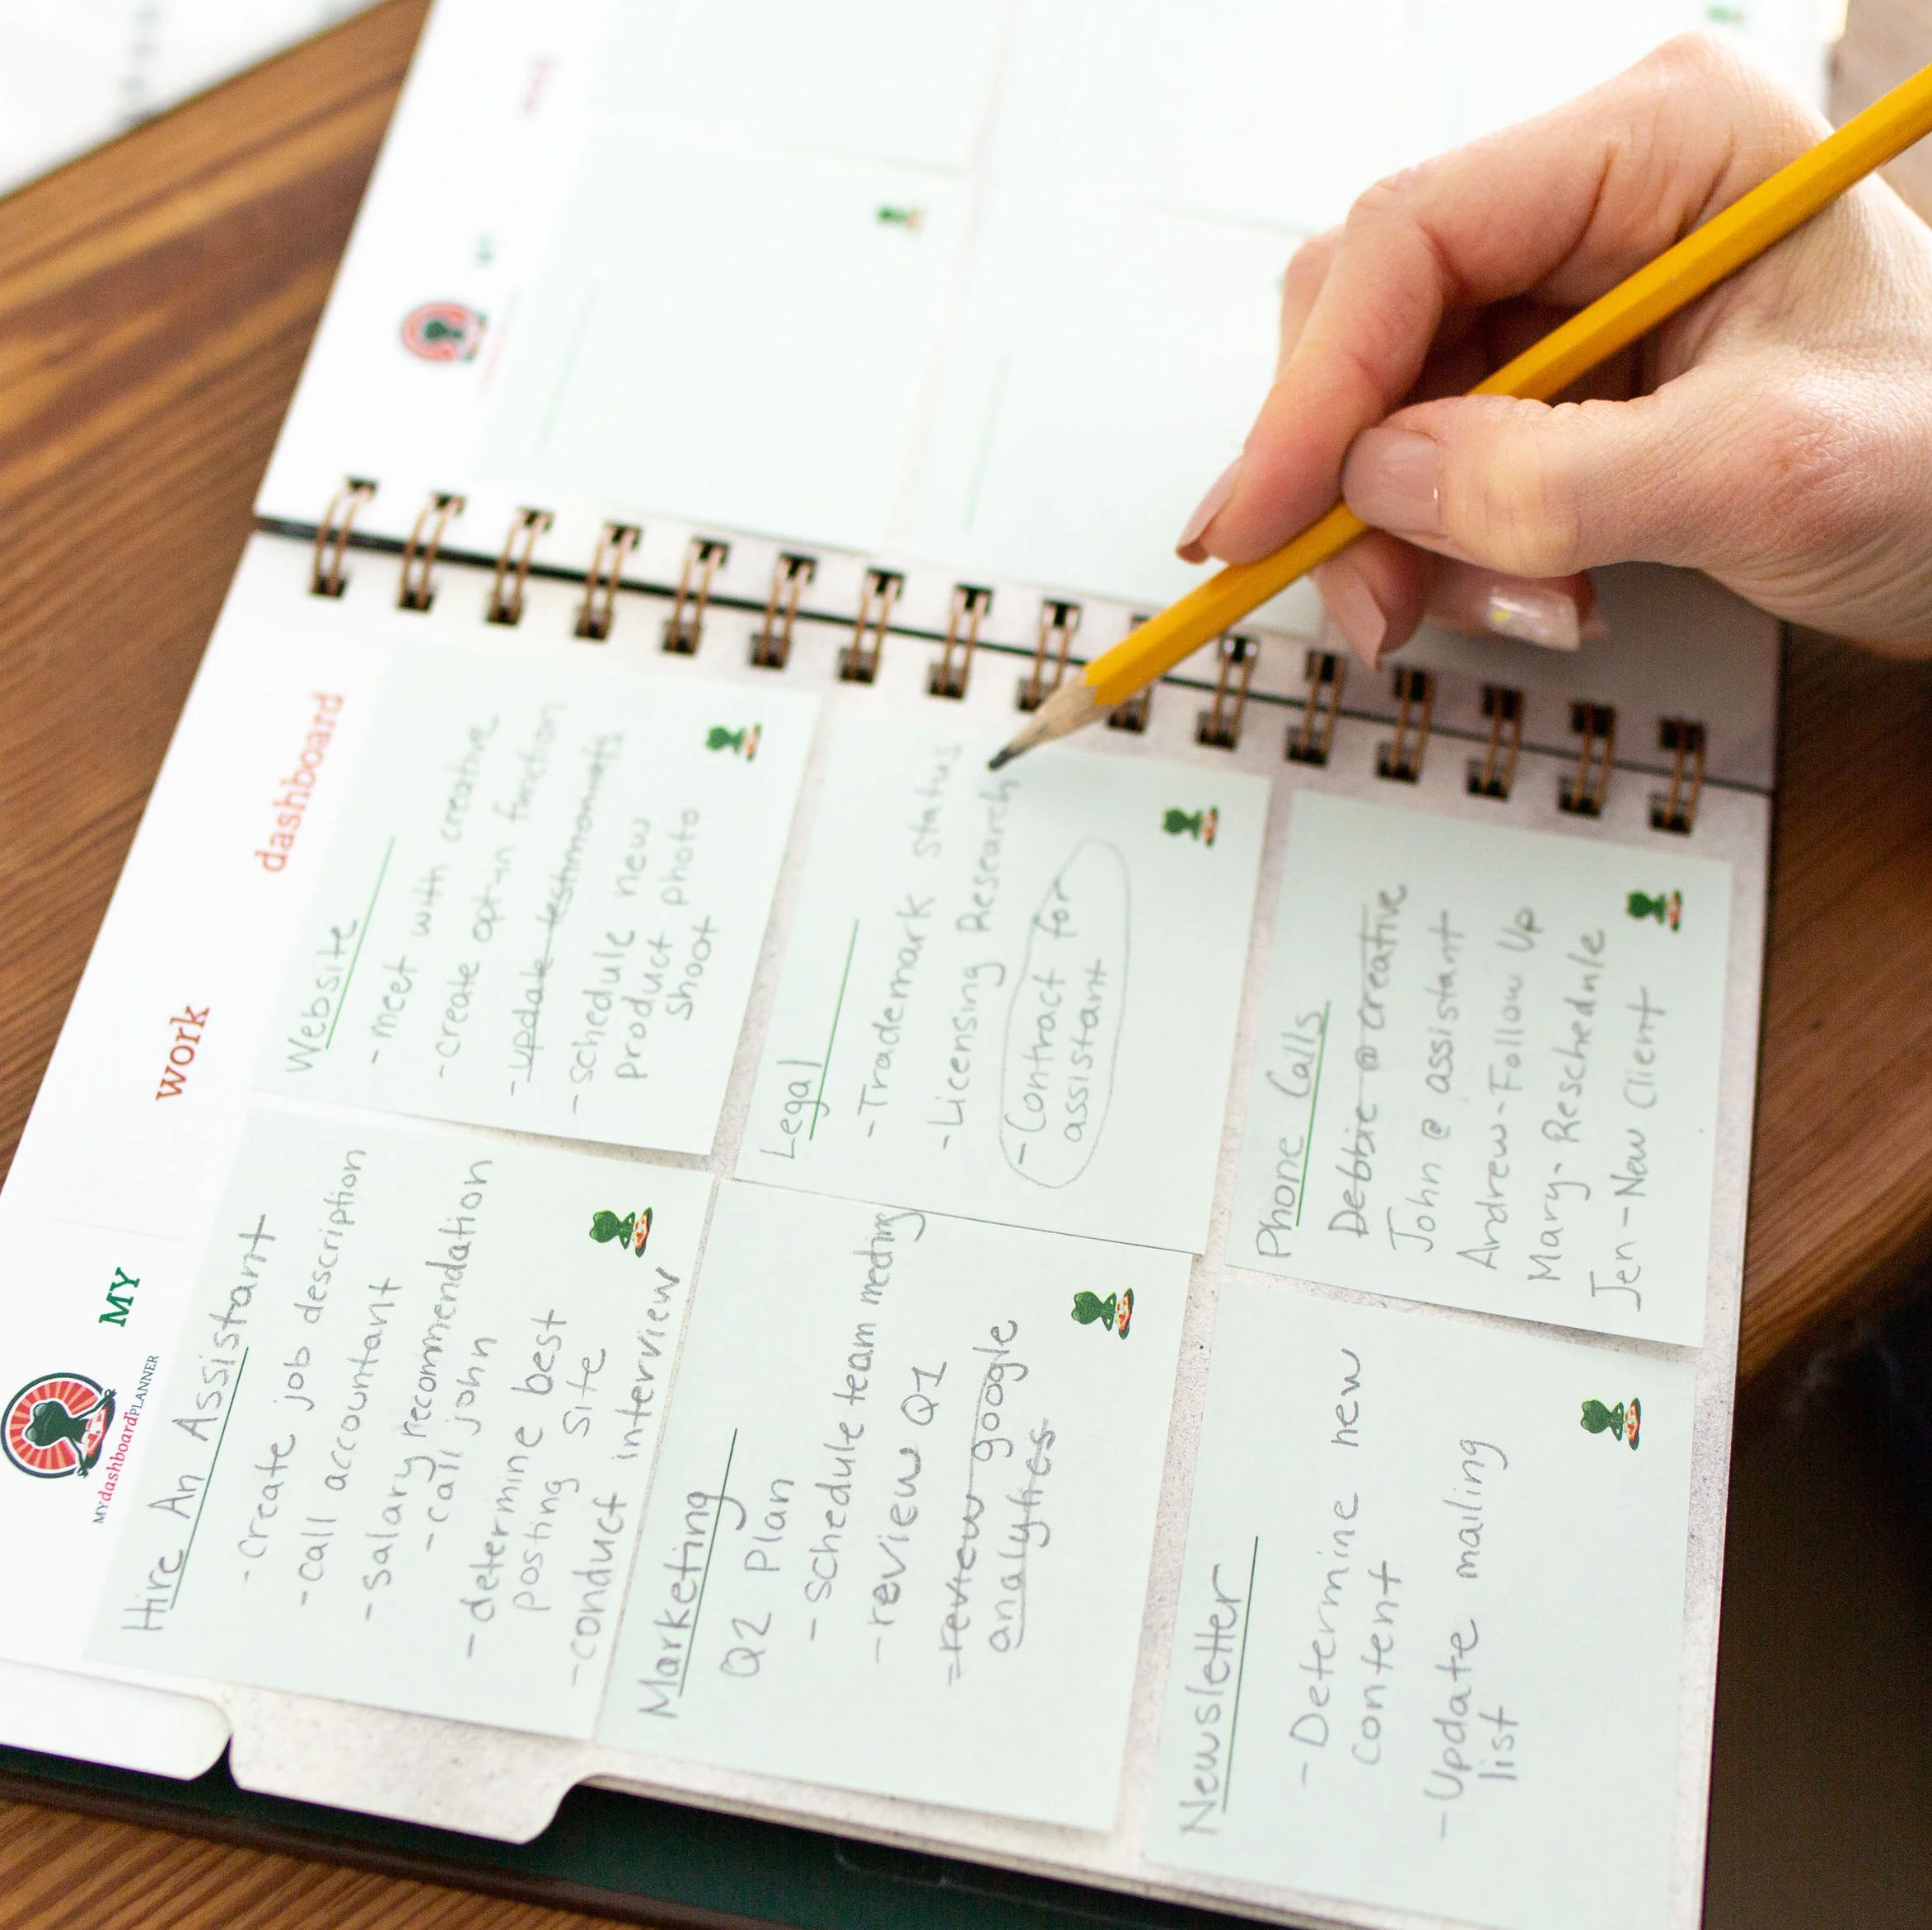 MY work dashboard
MYdashboardPLANNER
Hire An Assistant
- Create job description
- call accountant
- salary recommendation
- call john
- determine best
posting site
- conduct interview
Website
- meet with creative
- create opt-in function
- update testimonials
- schedule new
product photo
shoot
Marketing
Q2 Plan
- schedule team meeting
- review Q1
- review google
analytics
Legal
- Trademark status
- Licensing Research
- Contract for
assistant
Newsletter
- Determine new
content
- Update mailing
list
Phone Calls
Debbie @ creative
John @ assistant
Andrew - Follow Up
Mary - Reschedule
Jen - New Client